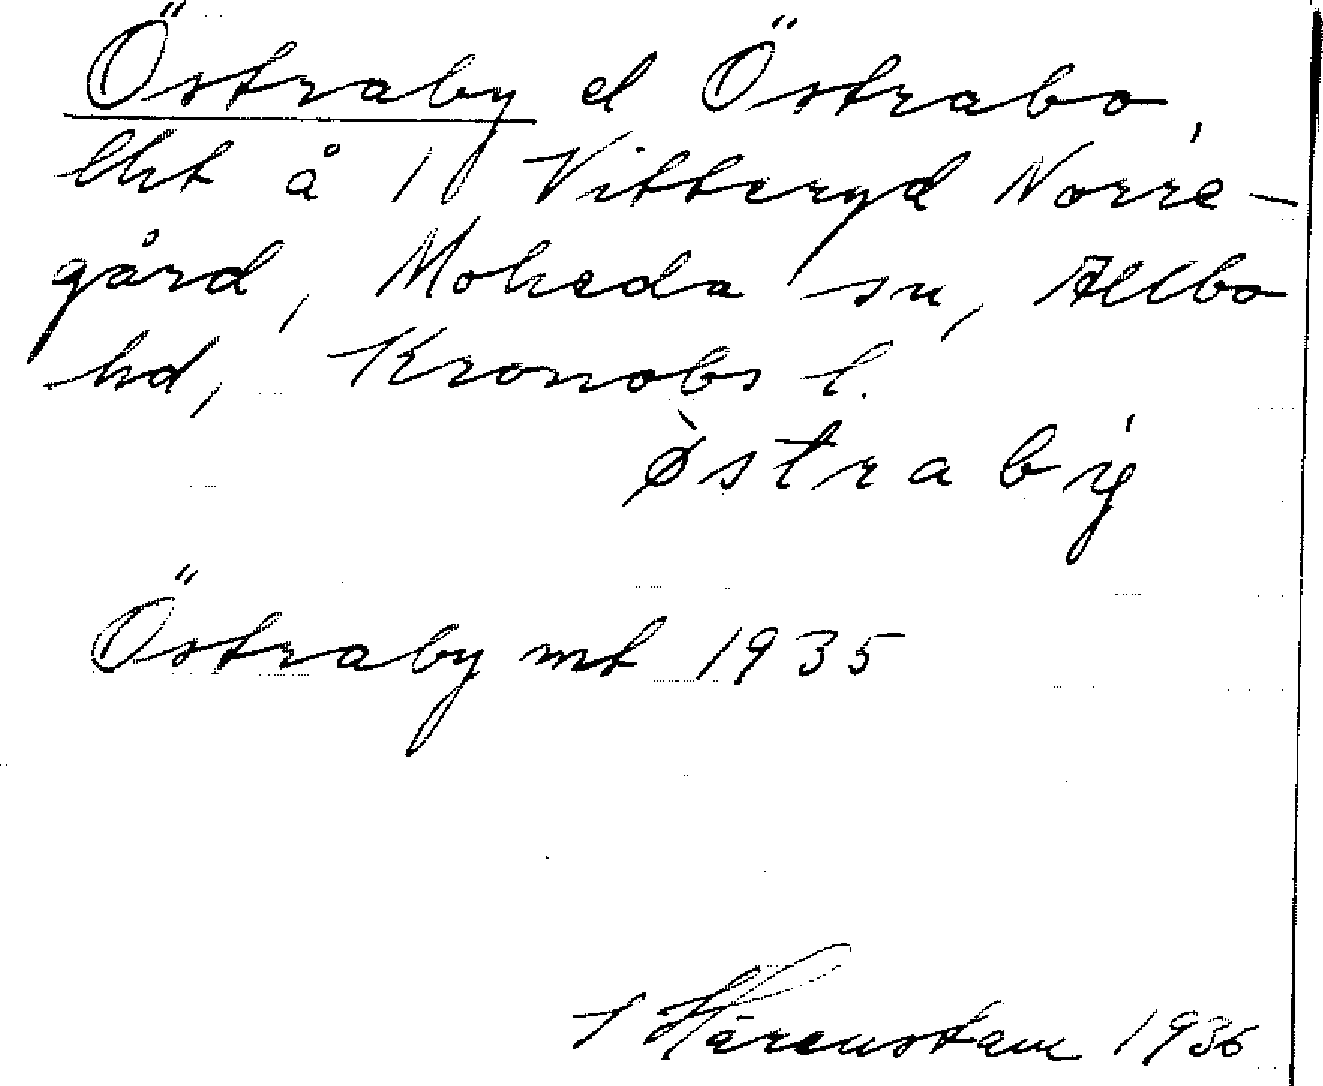 Östraby el Östrabo,
lht å 1 Vitteryd Norre-
gård, Moheda sn, Allbo
hd, Kronobs l.
ø̀straby̍
Östraby mt 1935
Härenstam 1936